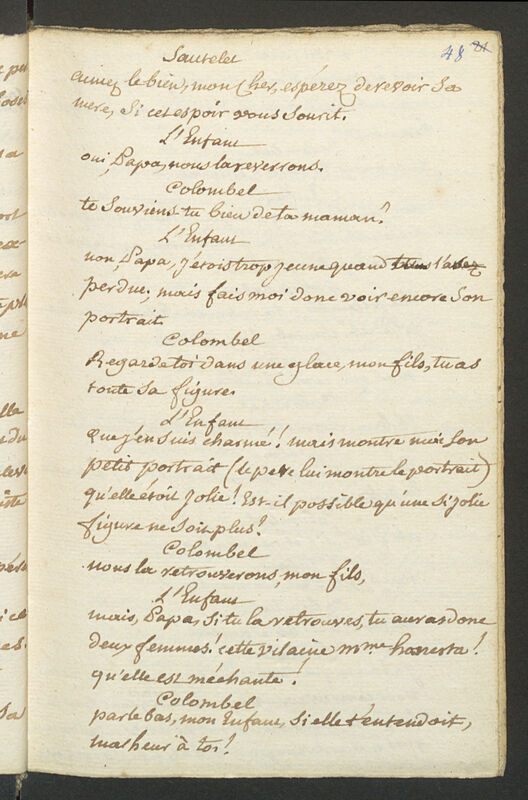 48 81
Sautelet
aimez le bien, mon cher, espérez de revoir sa
mere, si cet espoir vous sourit.
L'Enfant
oui, Papa, nous la reverrons.
Colombel
te souviens-tu bien de ta maman?
L'Enfant
non, Papa, j'étois trop jeune quand l'avez
perdue; mais fais moi donc voir encore son
portrait.
Colombel
Regarde toi dans une glace, mon fils, tu as
toute sa figure.
L'Enfant
Que j'en suis charmé! mais montre moi son
petit portrait (le pere lui montre le portrait)
qu'elle étoit jolie! Est-il possible qu'une si jolie
figure ne soit plus?
Colombel
nous la retrouverons, mon fils,
L'Enfant
mais, Papa, si tu la retrouves, tu auras donc
deux femmes! cette vilaine mme honesta!
qu'elle est méchante!
Colombel
parle bas, mon Enfant, si elle t'entendoit,
malheur à toi!